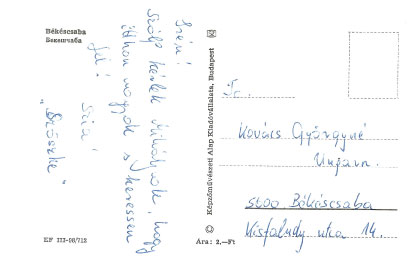 Békéscsaba
Бекешчаба
Szia!
Szólj kérlek Mihályék, hogy
itthon vagyok s keressen
fel!
Szia!
"Szöszke"
KF III-98/712
Képzőművészeti Alap Kiadóvállalata, Budapest
Ára: 2,—Ft
Fr.
Kovács Györgyné
Ungarn.
5700 Békéscsaba
Kisfaludy utca 14.